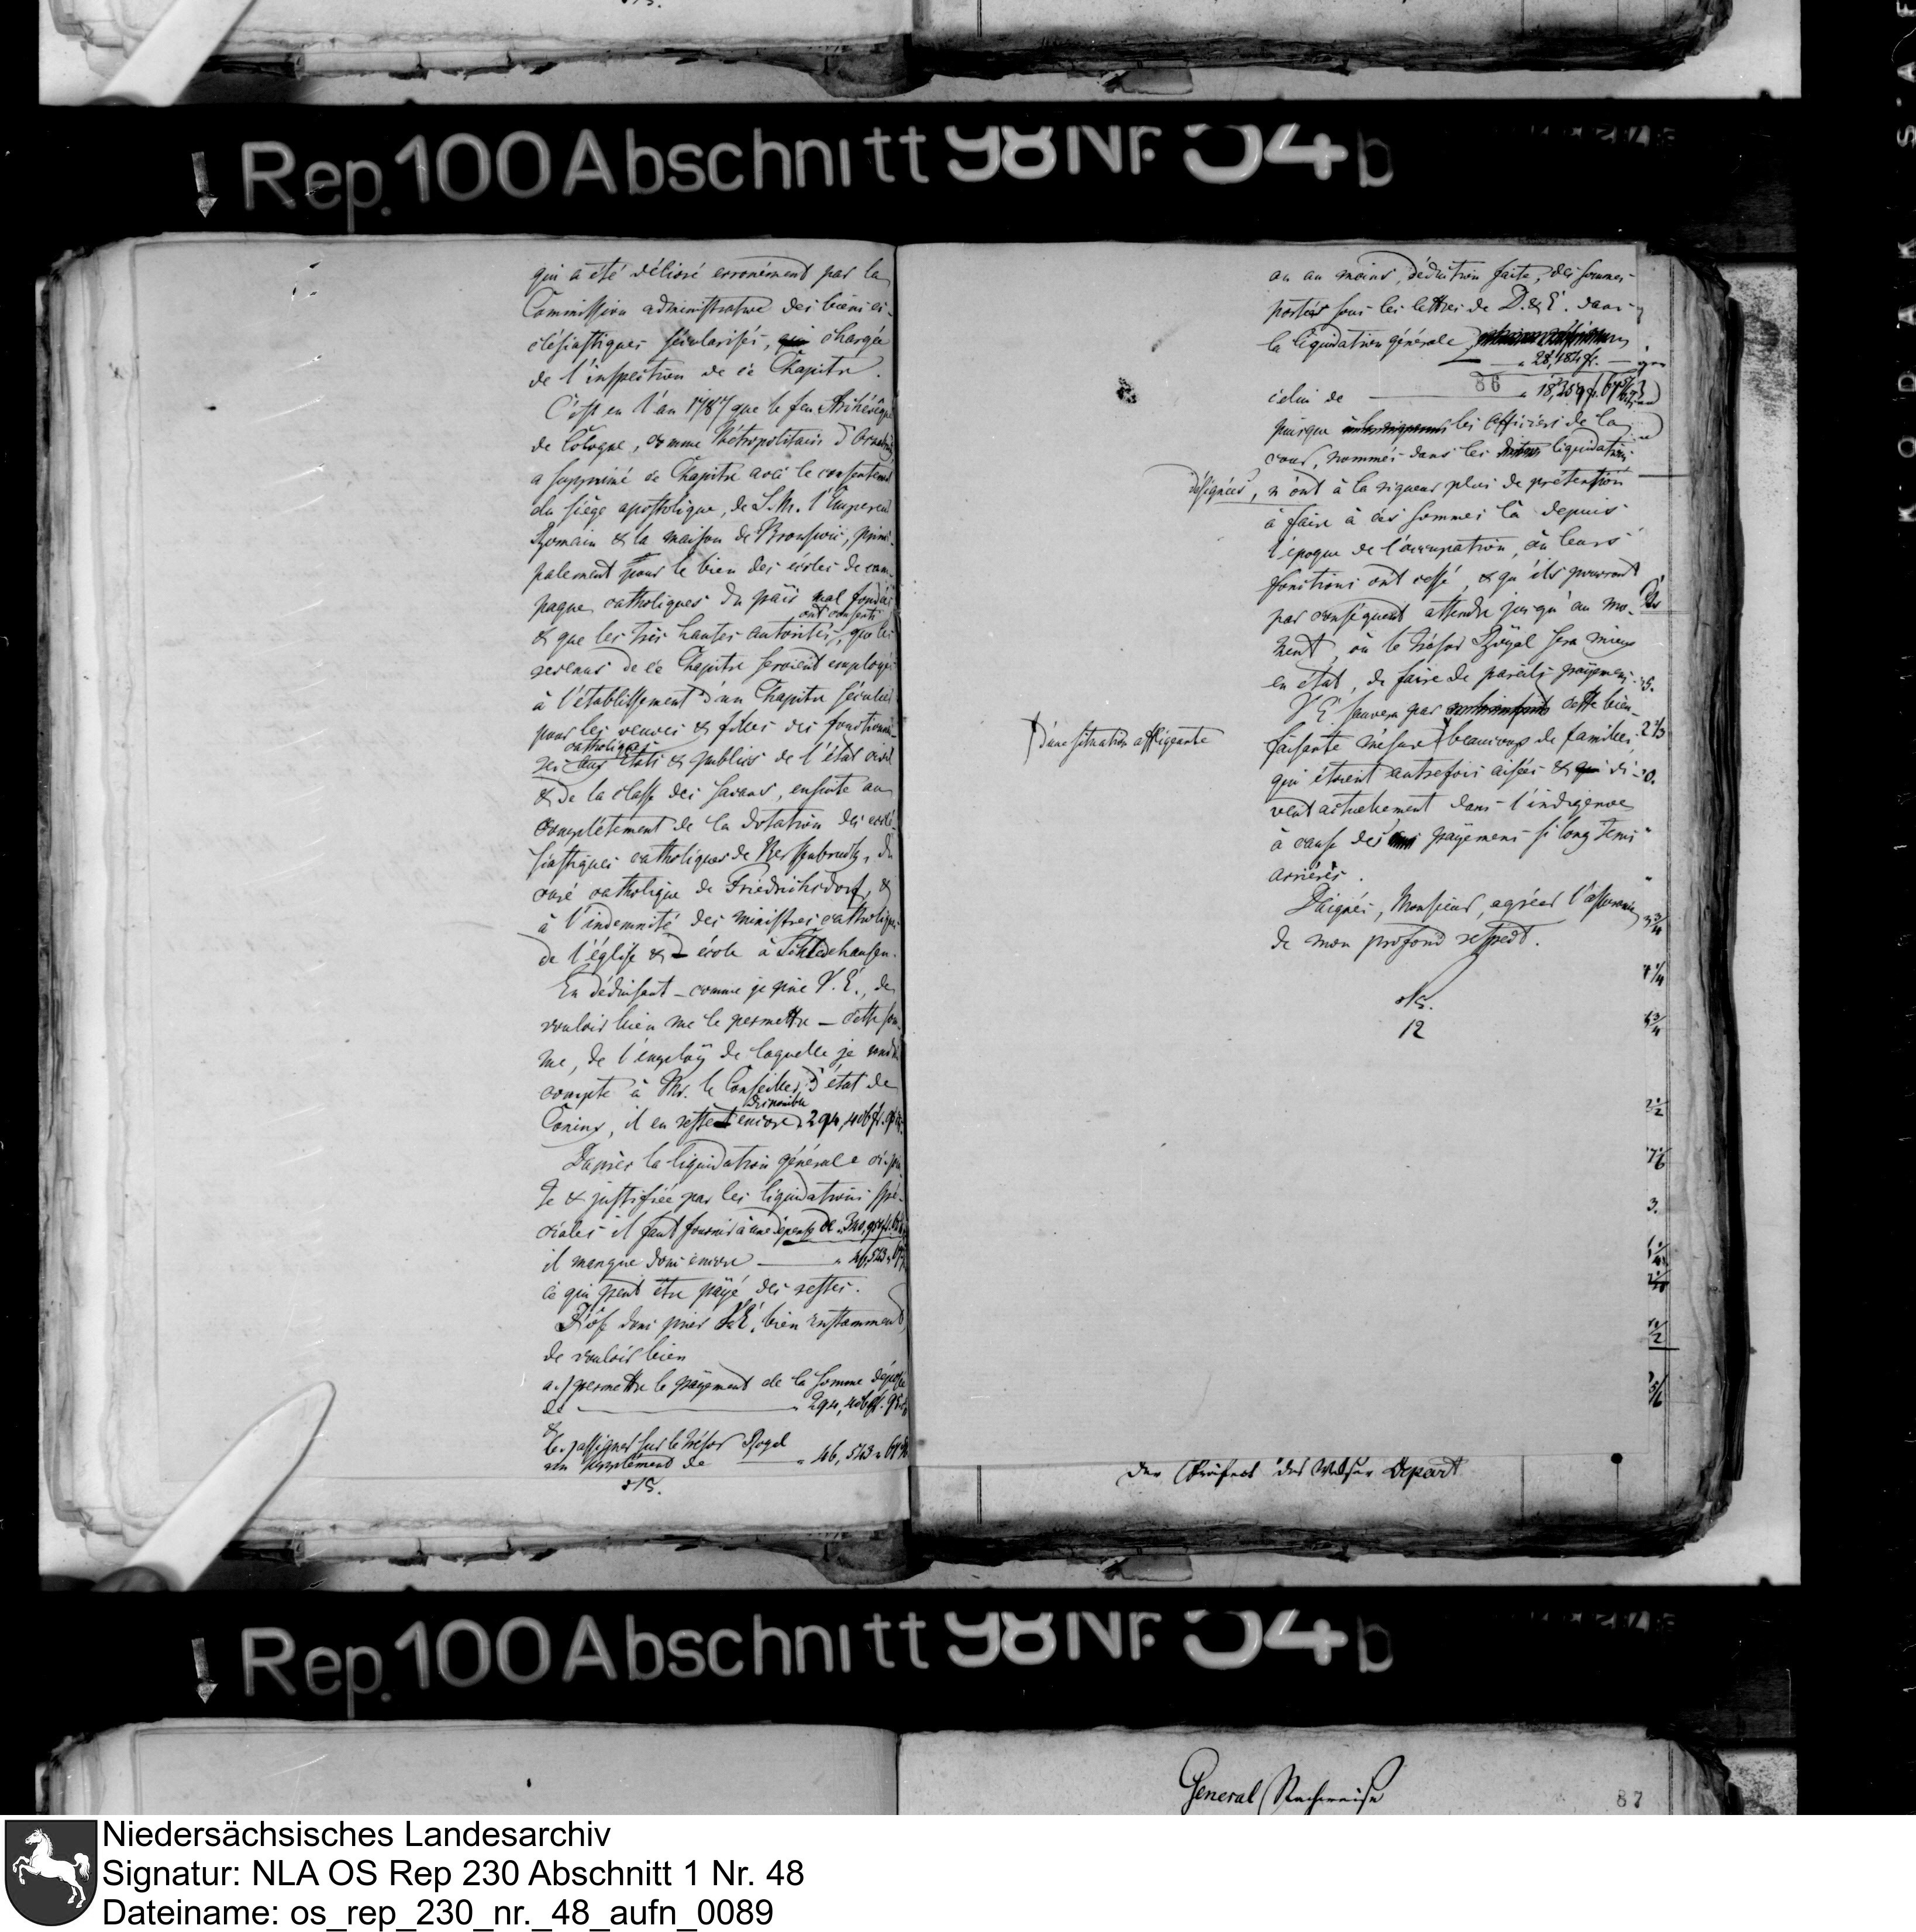 Rep. 100 Abschnitt 98 Nr. 54 b
qui a été délivré erronément par la
Commission administrative des biens ec-
clésiastiques sécularisés, chargée
de l'inspection de ce Chapitre.
C'est en l'an 1787 que le feu Archévêque
de Cologne, comme Métropolitain d'Osnabr
a supprimé ce Chapitre avec le consentement
du siège apostolique, de S. M. l'Empereur
Romain & la maison de Bronsvic, princi-
palement pour le bien des écoles de cam-
pagne catholiques du païs mal fondées
ont consenti
& que les très hautes autorités, que les
revenus de ce Chapitre seroient employés
à l'établissement d'un Chapitre séculier
pour les veuves & filles des fonctionai-
catholiques
res états & publics de l'état civil
& de la classe des savans, ensuite au
complétement de la dotation des ecclé-
siastiques catholiques de , du
curé catholique de Friedrichsdorf, &
à l'indemnité des ministres catholiques
de l'église & école à Schledehausen.
En déduisant – comme je prie V. E., de
vouloir bien me le permettre – cette som-
me, de l'emploÿ de laquelle je rendrai
compte à Mr. le Conseiller d'état de
disponible
Coninx, il en reste encore 294,406 fr.
D'après la liquidation générale ci-join
te & justifiée par les liquidations spé-
ciales il faut fournir à une dépense de
il manque donc encore — " 46,543 "
ce qui peut être païé des restes.
J'ose donc prier V. E. bien instamment
de vouloir bien
a.) permettre le païement de la somme déposée
de — 294,406 fr.
&
b.) assigner sur le trésor Royal
un supplément de — " 46,543 "
ou au moins, déduction faite, des sommes
portées sous les lettres de D. & E. dans
la liquidation générale
" 28,184 fr. —
86
celui de — " 18,359 fr.
puisque les officiers de la
cour, nommés dans les liquidations
désignées, n'ont à la rigueur plus de prétention
à faire à ces sommes là depuis
l'époque de l'occupation, où leurs
fonctions ont cessé, & qu'ils pourront
par conséquent attendre jusqu'au mo-
ment, où le trésor Royal sera mieux
en état, de faire de pareils païemens.
V. E. sauvera par cette bien-
d'une situation affligeante
faisante mésure beaucoup de familles,
qui étoient autrefois aisées & vi-
vent actuellement dans l'indigence
à cause des païemens si long tems
arriérés.
Daignés, Monsieur, agréer l'assurance
de mon profond respect.
12
Der Präfect des Weser Depart
Rep. 100 Abschnitt 98 Nr. 54 b
General Nachweise
87
Niedersächsisches Landesarchiv
Signatur: NLA OS Rep 230 Abschnitt 1 Nr. 48
Dateiname: os_rep_230_nr._48_aufn_0089
KODAK SAFE